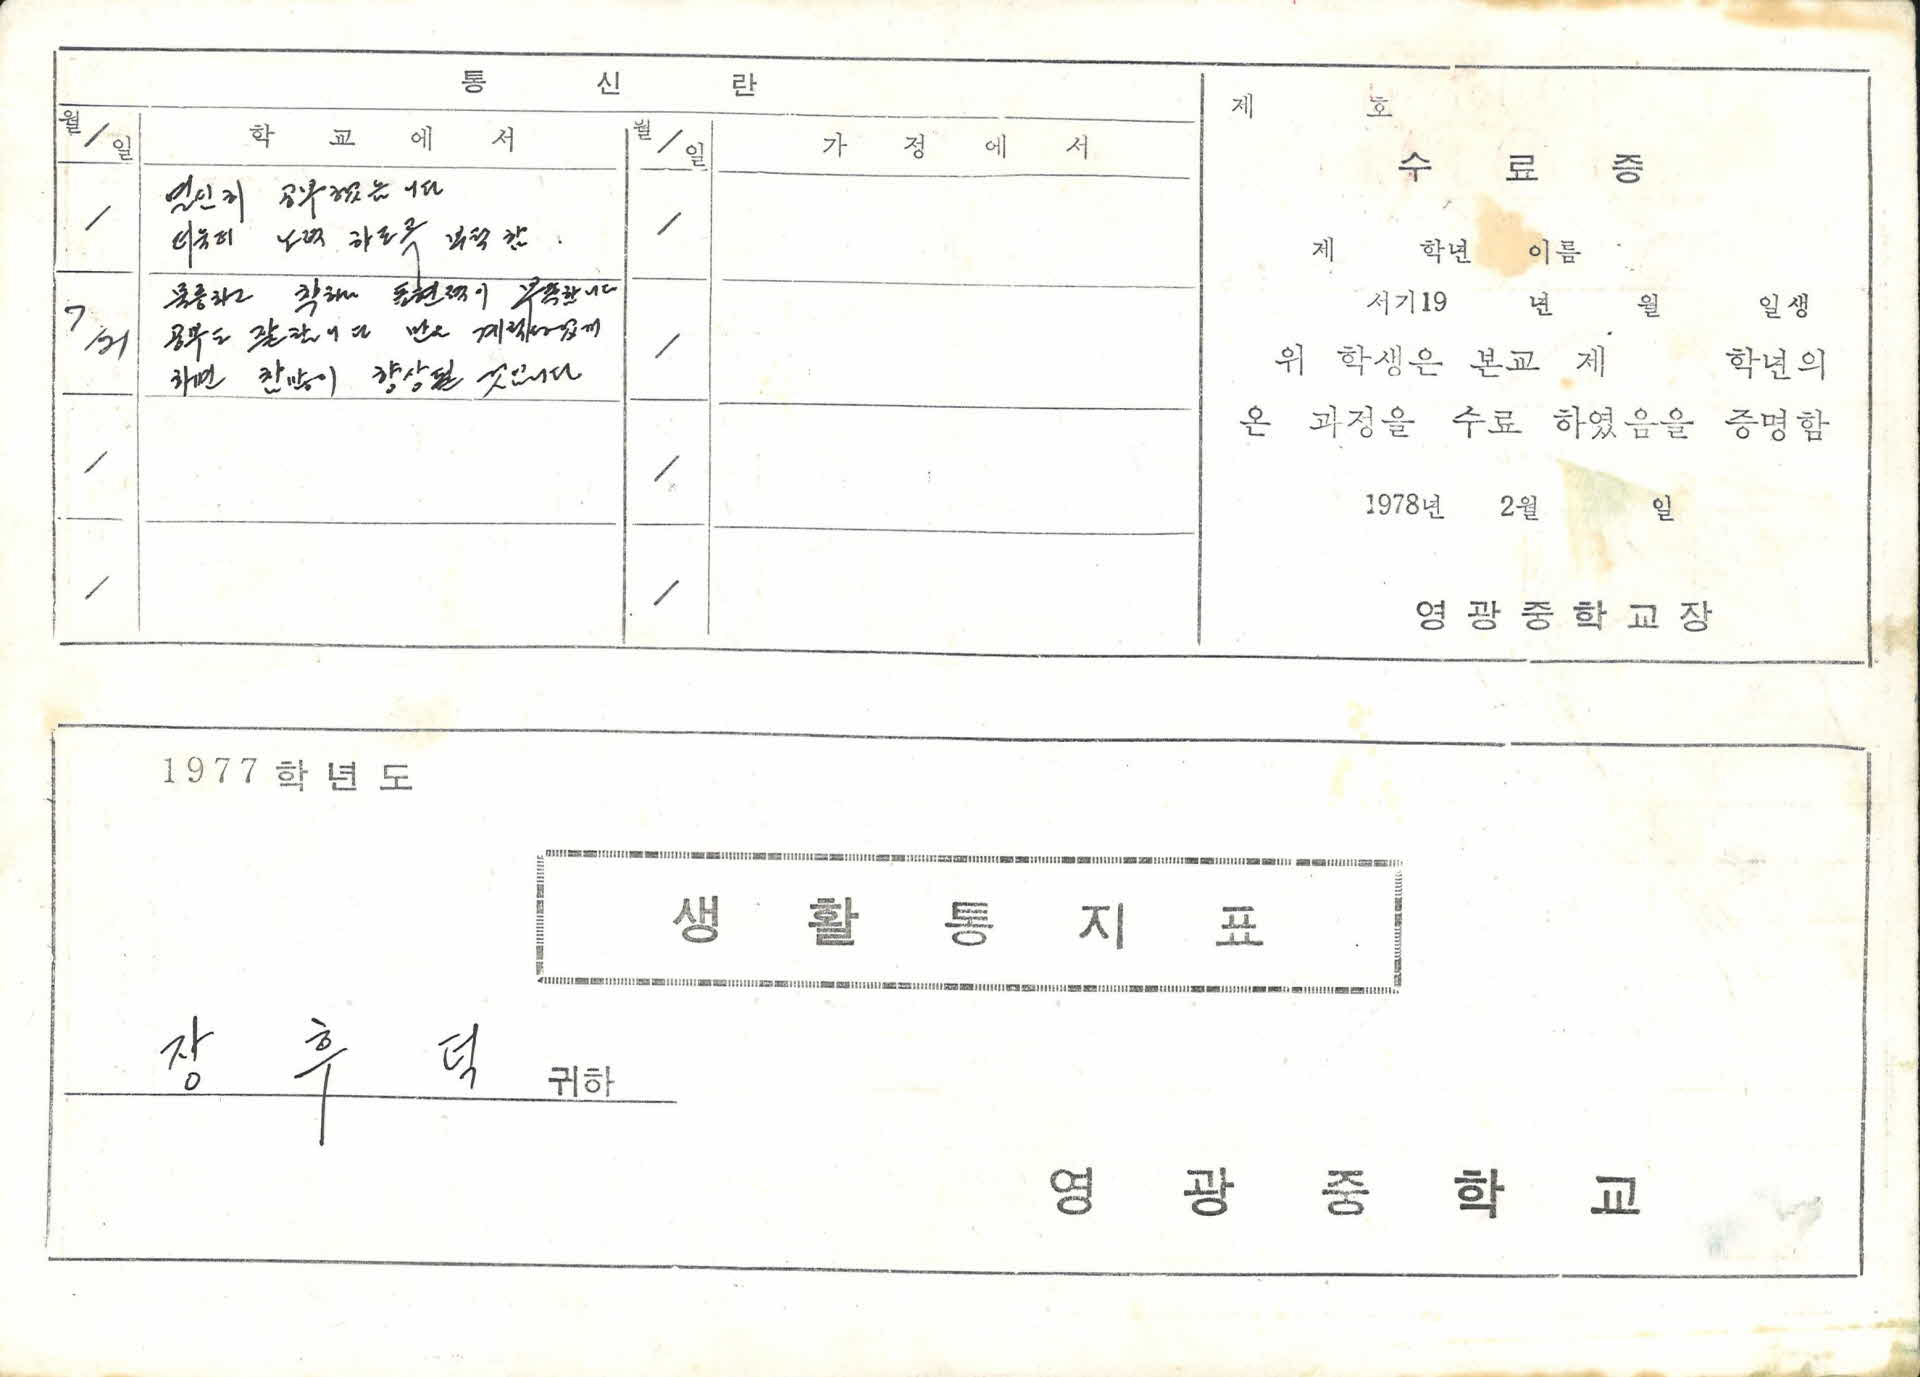 통 신 란
월/일 학 교 에 서 월/일 가 정 에 서
열심히 공부했습니다
더욱더 노력 하도록 부탁함.
7/21
착하나 표현력이 부족합니다
공부도 잘합니다 만요 계획성있게
하면 향상될 것입니다
제 호
수 료 증
제 학년 이름
서기19 년 월 일생
위 학생은 본교 제 학년의
온 과정을 수료 하였음을 증명함
1978년 2월 일
영광중학교장
1977학년도
생 활 통 지 표
장 후 덕 귀하
영 광 중 학 교